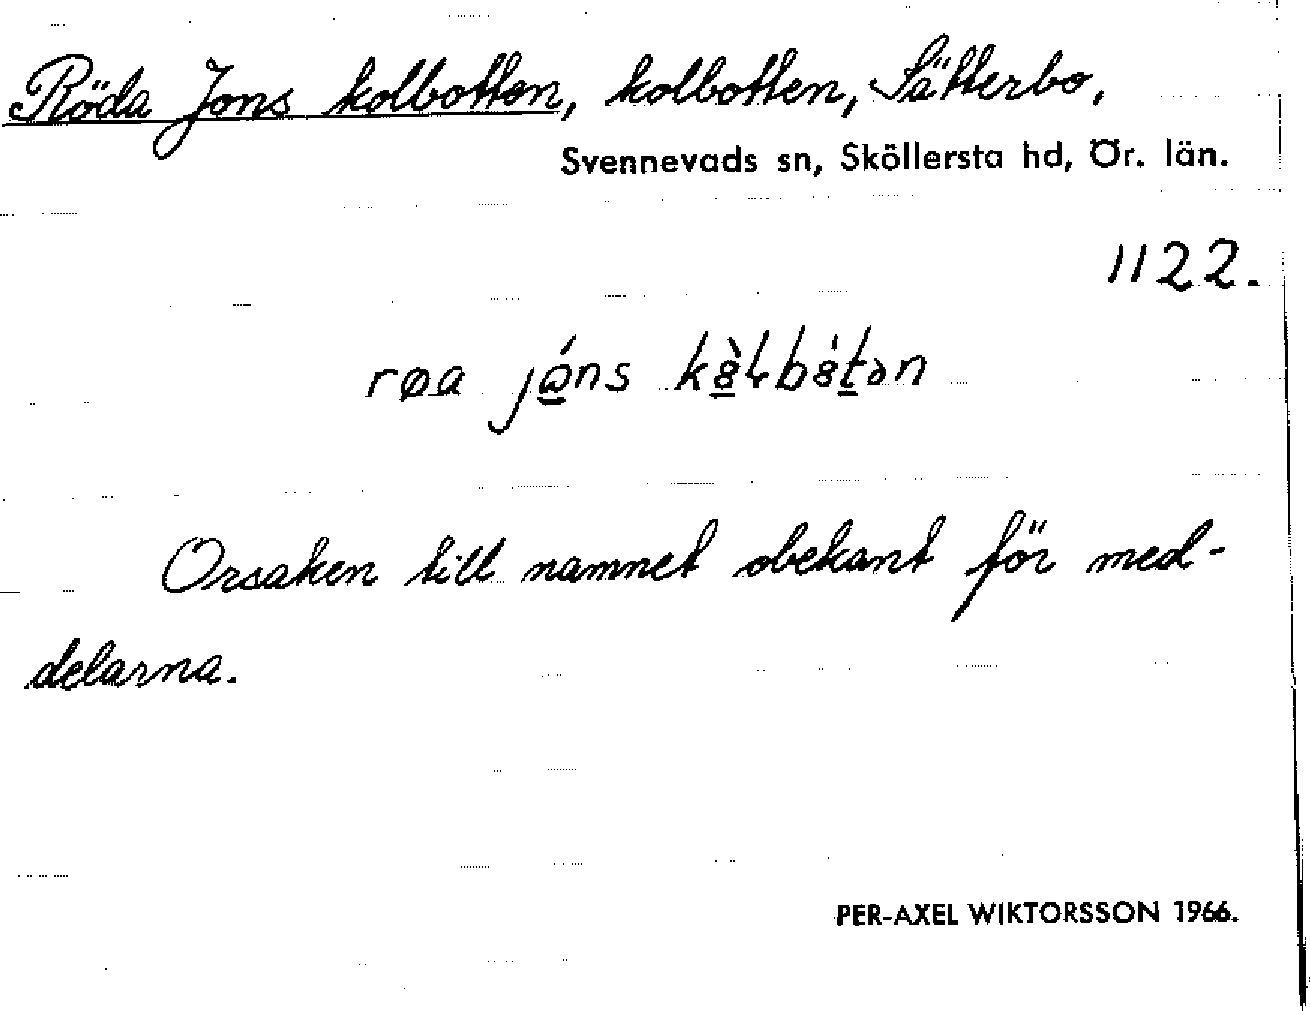 Röda Jons kolbotten, kolbotten, Sätterbo,
Svennevads sn, Sköllersta hd, Ör. län.
1122.
røa
Orsaken till namnet obekant för med-
delarna.
PER-AXEL WIKTORSSON 1966.